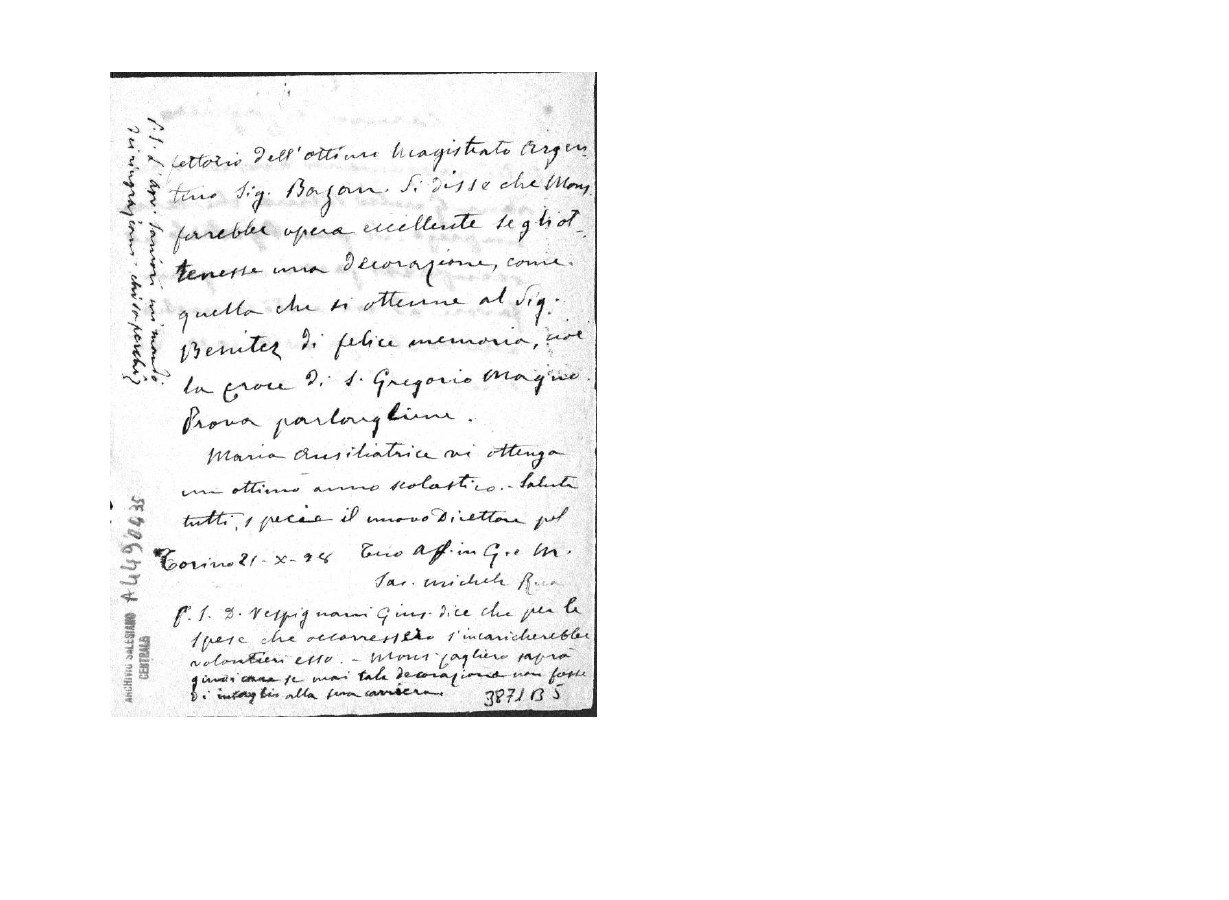 fettorio dell'ottimo Magistrato Argen-
tino Sig. Bazan. Si disse che Mons.
farebbe opera eccellente se gli ot-
tenesse una decorazione, come
quella che si ottenne al Sig.
Benitez di felice memoria, cioè
la croce di S. Gregorio Magno.
Prova parlargliene.
Maria Ausiliatrice vi ottenga
un ottimo anno scolastico. - Saluta
tutti, specie il nuovo Direttore pel
Torino 21 - X - 98 Tuo Aff. in G. e M.
Sac. Michele Rua
P. S. D. Vespignani Gius. dice che per le
spese che occorressero s'incaricherebbe
volontieri esso. - Mons. Cagliero saprà
giudicare se mai tale decorazione non fosse
di intaglio alla sua carriera.
3871 B 5
P. S. D.
mi mandò
dei ringraziam. chi sa perchè?
A4490435
ARCHIVIO SALESIANO
CENTRALE